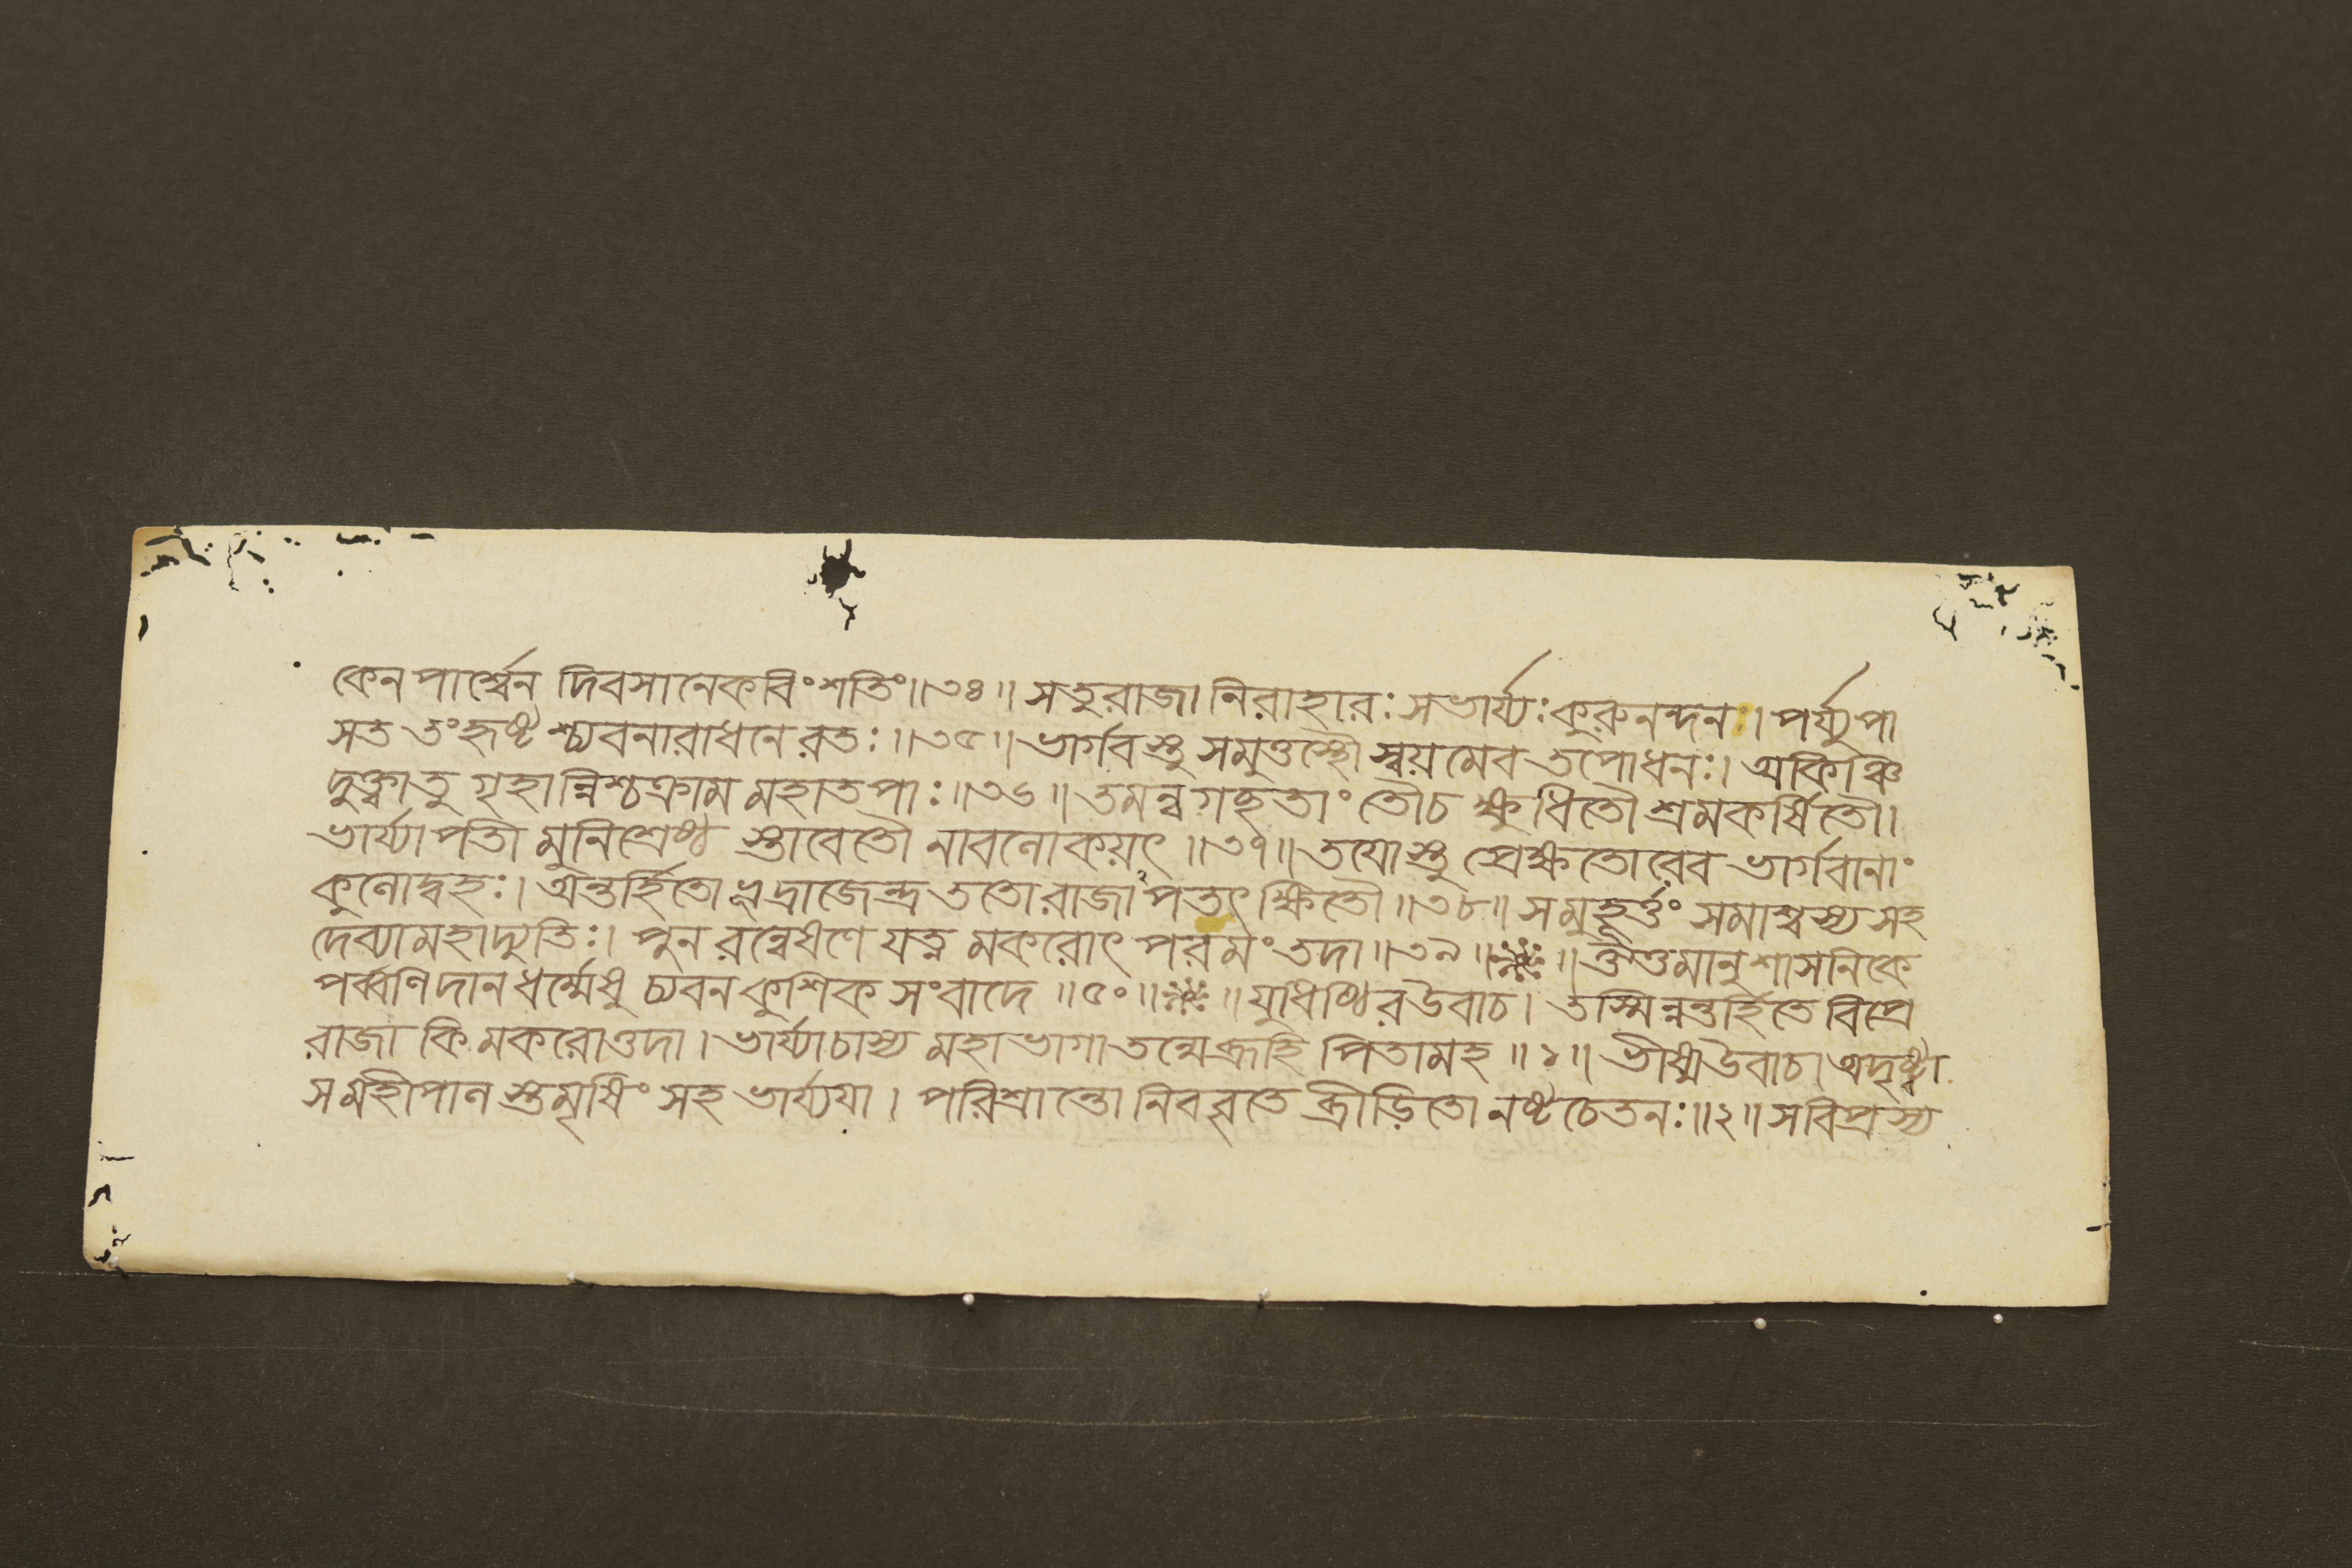 কেন পার্শ্বেন দিবসানেকবিংশতিং॥৩৪॥ সতু রাজা নিরাহারঃ সভার্য্যঃ কুরুনন্দনঃ। পর্য্যুপা
সত তং হৃষ্টশ্চ্যবনারাধনে রতঃ॥৩৫॥ ভার্গবস্তু সমুত্তস্থৌ স্বয়মেব তপোধনঃ। অকিঞ্চি
দুক্ত্বাতু গৃহান্নিশ্চক্রাম মহাতপাঃ॥৩৬॥ তমন্বগচ্ছতাং তৌচ ক্ষুধিতৌ শ্রমকর্ষিতৌ।
ভার্য্যাপতী মুনিশ্রেষ্ঠ স্তাবেতৌ নাবলোকয়ৎ॥৩৭॥ তয়োস্তু প্রেক্ষতোরেব ভার্গবানাং
কুলোদ্বহঃ। অন্তর্হিতো ভূদ্রাজেন্দ্র ততো রাজাপতৎ ক্ষিতৌ॥৩৮॥ সমুহূর্ত্তং সমাশ্বস্য সহ
দেব্যা মহাদ্যুতিঃ। পুনরন্বেষণে যত্নমকরোৎ পরমং তদা॥৩৯॥ ॥ ঔত্তমানুশাসনিকে
পর্ব্বণি দানধর্ম্মেষু চ্যবনকুশিক সংবাদে॥৫০॥ ॥ যুধিষ্ঠির উবাচ। তস্মিন্নন্তর্হিতে বিপ্রে
রাজা কিমকরোত্তদা। ভার্য্যাচাস্য মহাভাগা তন্মে ব্রূহি পিতামহ॥১॥ ভীষ্ম উবাচ। অদৃষ্ট্বা
স মহীপাল স্তমৃষিং সহ ভার্য্যয়া। পরিশ্রান্তো নিববৃতে ব্রীড়িতো নষ্টচেতনঃ॥২॥ স বিপ্রস্য